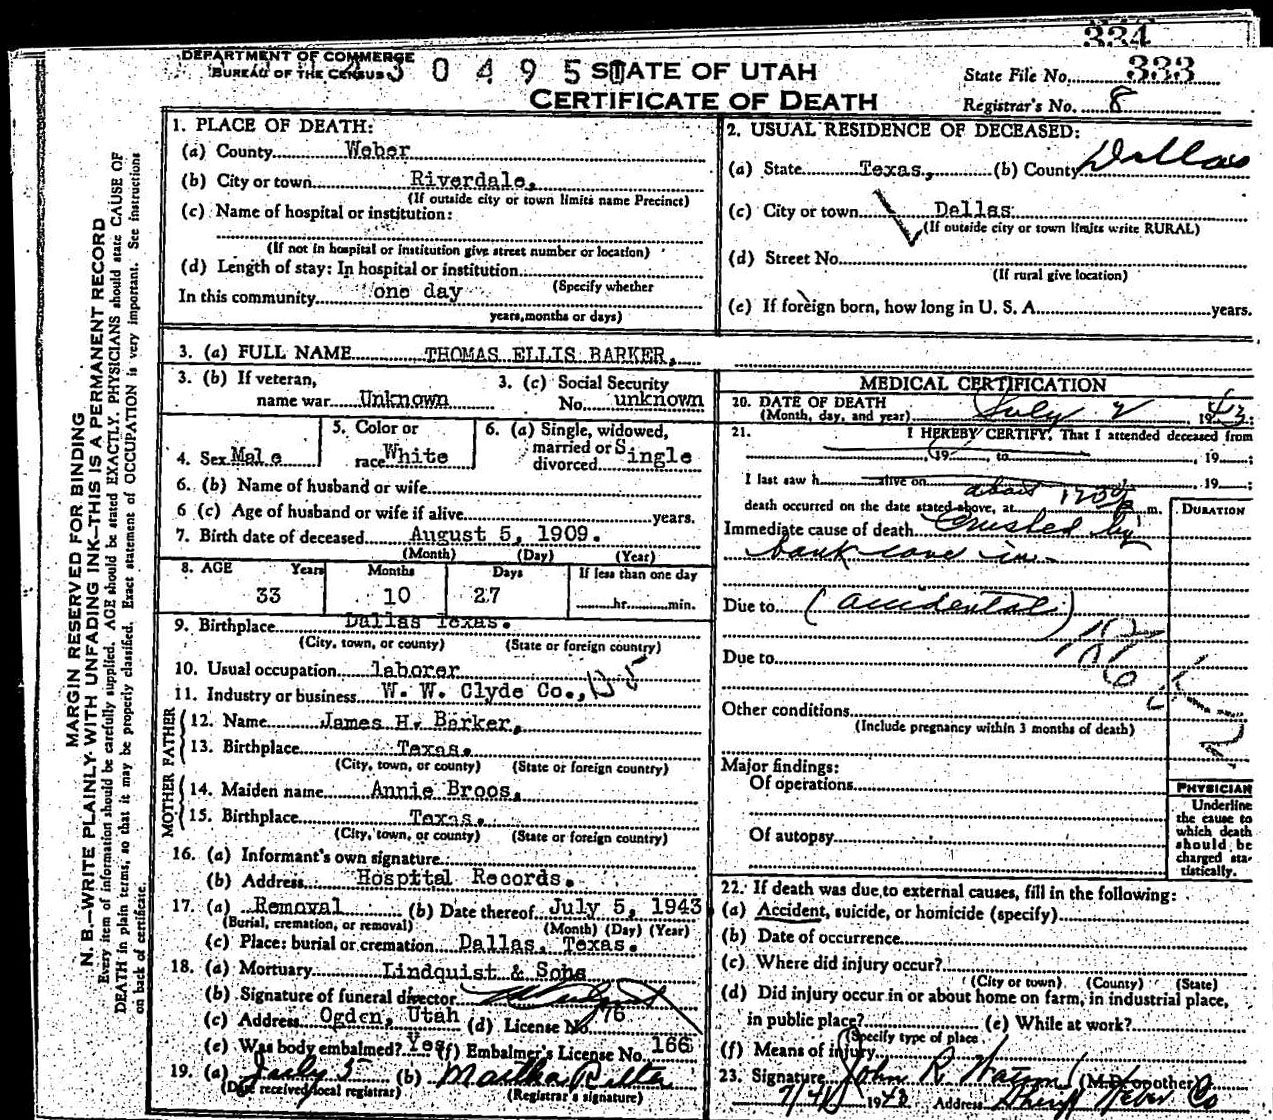 334
DEPARTMENT OF COMMERCE
BUREAU OF THE CENSUS
30495
STATE OF UTAH
CERTIFICATE OF DEATH
State File No. 333
Registrar's No. 8
MARGIN RESERVED FOR BINDING
N. B.—WRITE PLAINLY WITH UNFADING INK—THIS IS A PERMANENT RECORD
Every item of information should be carefully supplied. AGE should be stated EXACTLY. PHYSICIANS should state CAUSE OF
DEATH in plain terms, so that it may be properly classified. Exact statement of OCCUPATION is very important. See instructions
on back of certificate.
1. PLACE OF DEATH:
(a) County Weber
(b) City or town Riverdale,
(If outside city or town limits name Precinct)
(c) Name of hospital or institution:
(If not in hospital or institution give street number or location)
(d) Length of stay: In hospital or institution
(Specify whether
In this community one day
years, months or days)
2. USUAL RESIDENCE OF DECEASED:
(a) State Texas, (b) County Dallas
(c) City or town Dallas
(If outside city or town limits write RURAL)
(d) Street No.
(If rural give location)
(e) If foreign born, how long in U. S. A. years.
3. (a) FULL NAME THOMAS ELLIS BARKER,
3. (b) If veteran, name war Unknown
3. (c) Social Security No. unknown
4. Sex Male
5. Color or race White
6. (a) Single, widowed, married or divorced Single
6. (b) Name of husband or wife
6 (c) Age of husband or wife if alive years.
7. Birth date of deceased August 5, 1909.
(Month) (Day) (Year)
8. AGE Years Months Days If less than one day
33 10 27 hr. min.
9. Birthplace Dallas Texas.
(City, town, or county) (State or foreign country)
10. Usual occupation laborer
11. Industry or business W. W. Clyde Co.,
FATHER
12. Name James H. Barker,
13. Birthplace Texas.
(City, town, or county) (State or foreign country)
MOTHER
14. Maiden name Annie Broos,
15. Birthplace Texas.
(City, town, or county) (State or foreign country)
16. (a) Informant's own signature
(b) Address Hospital Records.
17. (a) Removal (b) Date thereof July 5, 1943
(Burial, cremation, or removal) (Month) (Day) (Year)
(c) Place: burial or cremation Dallas, Texas.
18. (a) Mortuary Lindquist & Sons
(b) Signature of funeral director
(c) Address Ogden, Utah (d) License No. 76
(e) Was body embalmed? Yes (f) Embalmer's License No. 166
19. (a) July 5 (b) Martha Ritter
(Date received local registrar) (Registrar's signature)
MEDICAL CERTIFICATION
20. DATE OF DEATH
(Month, day, and year) July 2 1943
21. I HEREBY CERTIFY, That I attended deceased from
, 19 , to , 19 ;
I last saw h alive on , 19 ;
death occurred on the date stated above, at about m.
DURATION
Immediate cause of death Crushed by
bank cave in
Due to (accidental)
Due to
Other conditions
(Include pregnancy within 3 months of death)
Major findings:
Of operations
Of autopsy
PHYSICIAN
Underline
the cause to
which death
should be
charged sta-
tistically.
22. If death was due to external causes, fill in the following:
(a) Accident, suicide, or homicide (specify)
(b) Date of occurrence
(c) Where did injury occur?
(City or town) (County) (State)
(d) Did injury occur in or about home on farm, in industrial place,
in public place? (e) While at work?
(Specify type of place)
(f) Means of injury
23. Signature John R. Watson (M.D. or other)
1943 Address Sheriff Weber Co